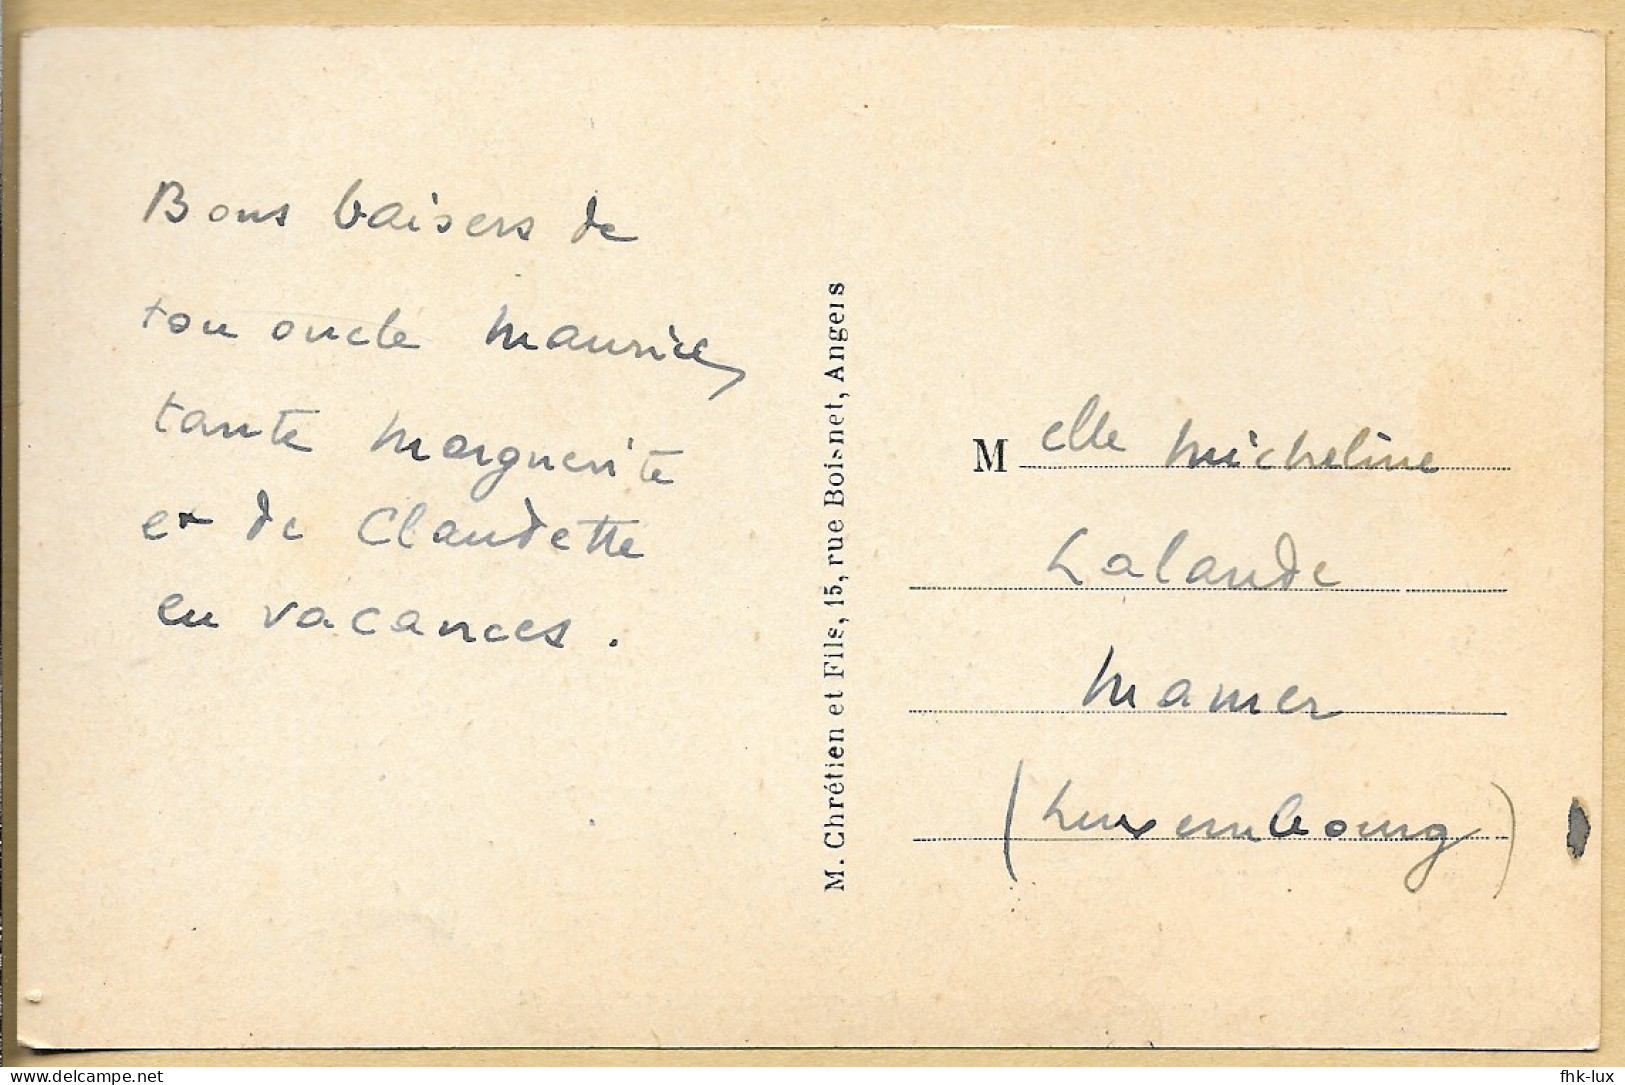 Bons baisers de
ton oncle Maurice,
tante Marguerite
et de Claudette
en vacances.
M. Chrétien et Fils, 15, rue Boisnet, Angers
Melle Micheline
Lalande
Mamer
(Luxembourg)
www.delcampe.net
fhk-lux